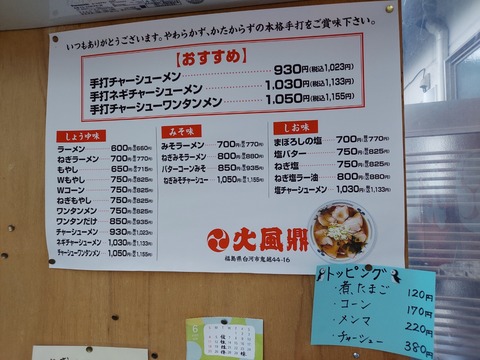 いつもありがとうございます。やわらかず、かたからずの本格手打をご賞味下さい。
【おすすめ】
手打チャーシューメン 930円(税込1,023円)
手打ネギチャーシューメン 1,030円(税込1,133円)
手打チャーシューワンタンメン 1,050円(税込1,155円)
しょうゆ味
ラーメン 600円(税込660)
ねぎラーメン 700円(税込770)
もやし 650円(税込715)
Wもやし 750円(税込825)
Wコーン 750円(税込825)
ねぎもやし 750円(税込825)
ワンタンメン 750円(税込825)
ワンタンだけ 850円(税込935)
チャーシューメン 930円(税込1,023)
ネギチャーシューメン 1,030円(税込1,133)
チャーシューワンタンメン 1,050円(税込1,155)
みそ味
みそラーメン 700円(税込770円)
ねぎみそラーメン 800円(税込880円)
バターコーンみそ 850円(税込935円)
ねぎみそチャーシュー 1,050円(税込1,155円)
しお味
まぼろしの塩 700円(税込770円)
塩バター 750円(税込825円)
ねぎ塩 750円(税込825円)
ねぎ塩ラー油 800円(税込880円)
塩チャーシューメン 1,030円(税込1,133円)
火風鼎
福島県白河市鬼越44-16
トッピング
・煮たまご 120円
・コーン 170円
・メンマ 220円
・チャーシュー 380円